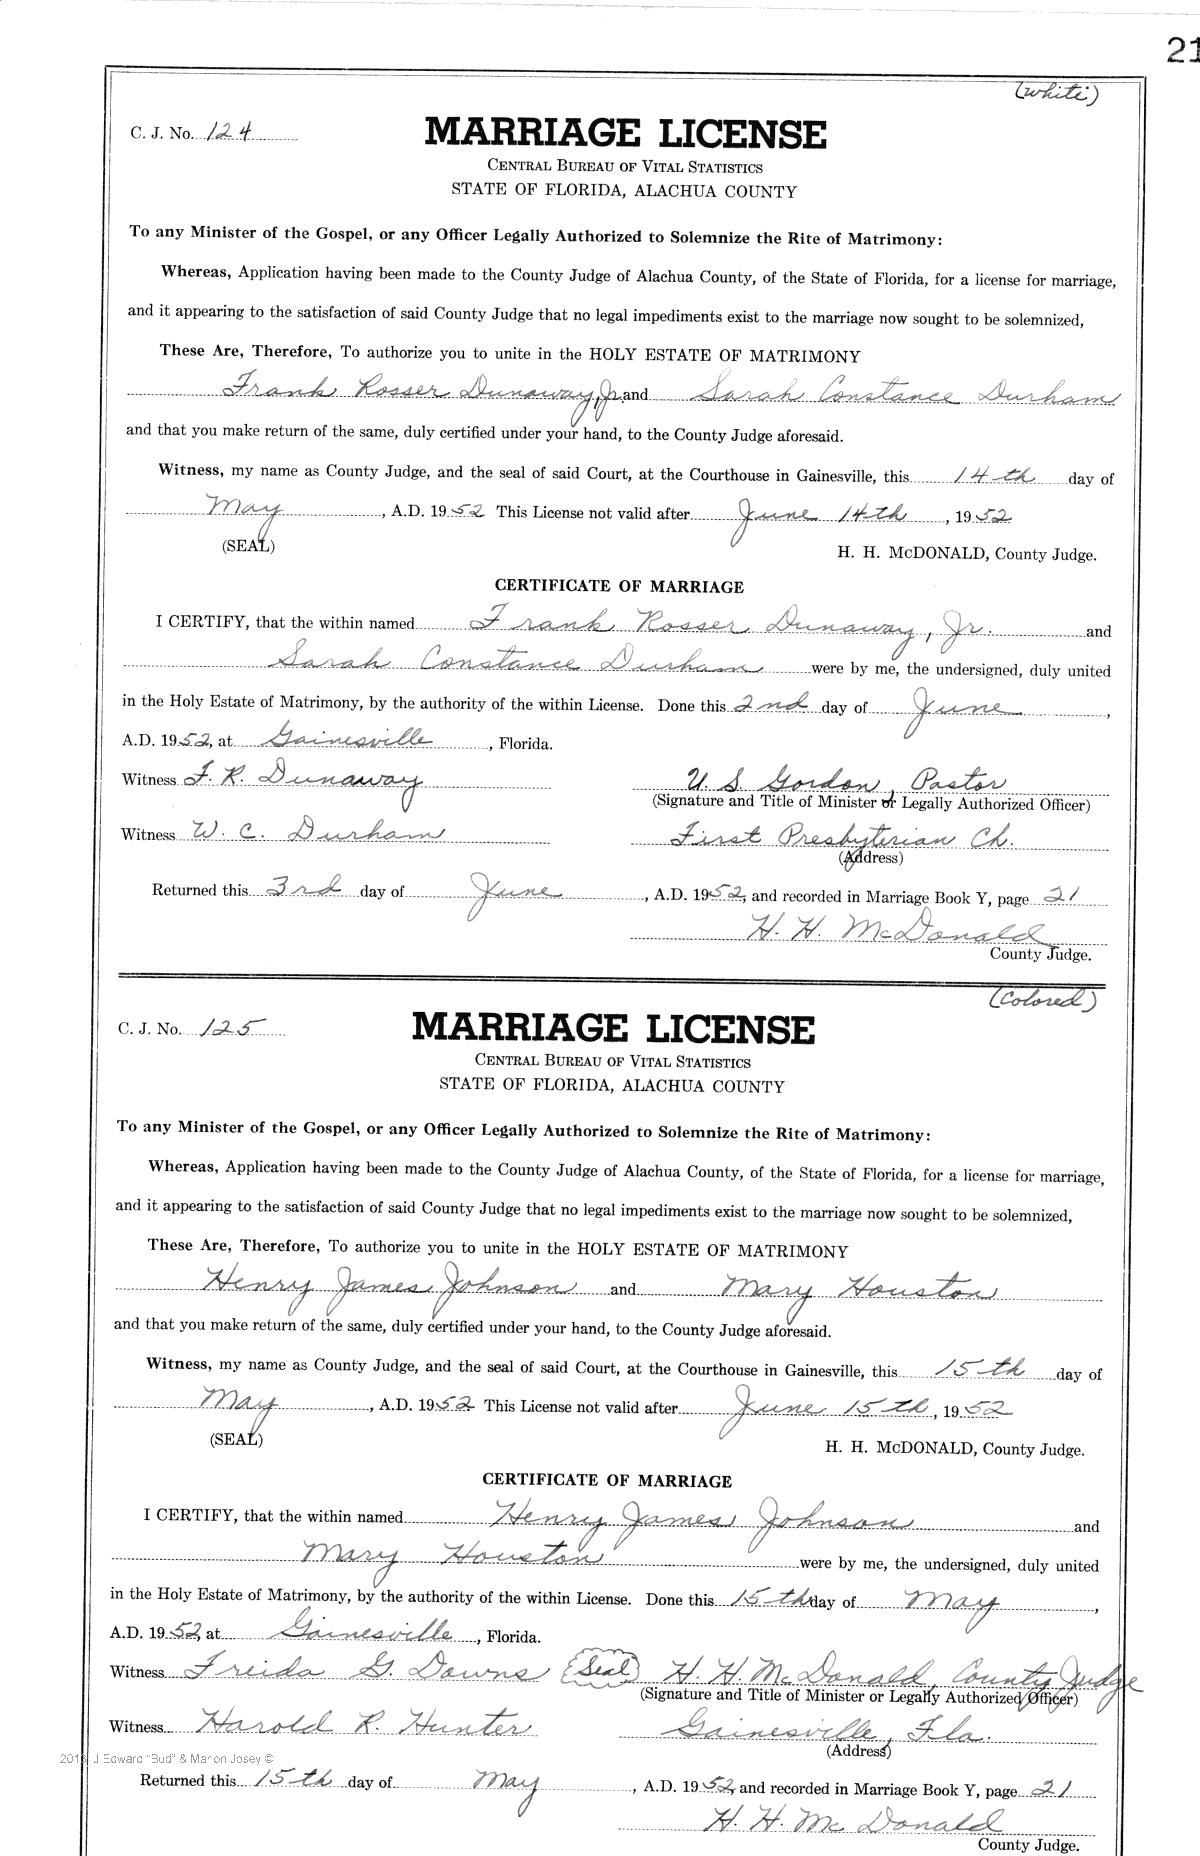 21
(white)
C. J. No. 124
MARRIAGE LICENSE
CENTRAL BUREAU OF VITAL STATISTICS
STATE OF FLORIDA, ALACHUA COUNTY
To any Minister of the Gospel, or any Officer Legally Authorized to Solemnize the Rite of Matrimony:
Whereas, Application having been made to the County Judge of Alachua County, of the State of Florida, for a license for marriage,
and it appearing to the satisfaction of said County Judge that no legal impediments exist to the marriage now sought to be solemnized,
These Are, Therefore, To authorize you to unite in the HOLY ESTATE OF MATRIMONY
Frank Rosser Dunaway, Jr. and Sarah Constance Durham
and that you make return of the same, duly certified under your hand, to the County Judge aforesaid.
Witness, my name as County Judge, and the seal of said Court, at the Courthouse in Gainesville, this 14th day of
May, A.D. 1952 This License not valid after June 14th, 1952
(SEAL)
H. H. McDONALD, County Judge.
CERTIFICATE OF MARRIAGE
I CERTIFY, that the within named Frank Rosser Dunaway, Jr. and
Sarah Constance Durham were by me, the undersigned, duly united
in the Holy Estate of Matrimony, by the authority of the within License. Done this 2nd day of June,
A.D. 1952, at Gainesville, Florida.
Witness F. R. Dunaway U. S. Gordon, Pastor
(Signature and Title of Minister or Legally Authorized Officer)
Witness W. C. Durham First Presbyterian Ch.
(Address)
Returned this 3rd day of June, A.D. 1952, and recorded in Marriage Book Y, page 21
H. H. McDonald
County Judge.
(Colored)
C. J. No. 125
MARRIAGE LICENSE
CENTRAL BUREAU OF VITAL STATISTICS
STATE OF FLORIDA, ALACHUA COUNTY
To any Minister of the Gospel, or any Officer Legally Authorized to Solemnize the Rite of Matrimony:
Whereas, Application having been made to the County Judge of Alachua County, of the State of Florida, for a license for marriage,
and it appearing to the satisfaction of said County Judge that no legal impediments exist to the marriage now sought to be solemnized,
These Are, Therefore, To authorize you to unite in the HOLY ESTATE OF MATRIMONY
Henry James Johnson and Mary Houston
and that you make return of the same, duly certified under your hand, to the County Judge aforesaid.
Witness, my name as County Judge, and the seal of said Court, at the Courthouse in Gainesville, this 15th day of
May, A.D. 1952 This License not valid after June 15th, 1952
(SEAL)
H. H. McDONALD, County Judge.
CERTIFICATE OF MARRIAGE
I CERTIFY, that the within named Henry James Johnson and
Mary Houston were by me, the undersigned, duly united
in the Holy Estate of Matrimony, by the authority of the within License. Done this 15th day of May,
A.D. 1952, at Gainesville, Florida.
Witness Freida G. Downs (Seal) H. H. McDonald, County Judge
(Signature and Title of Minister or Legally Authorized Officer)
Witness Harold R. Hunter Gainesville, Fla.
(Address)
J Edward "Bud" & Marion Josey ©
Returned this 15th day of May, A.D. 1952, and recorded in Marriage Book Y, page 21
H. H. McDonald
County Judge.